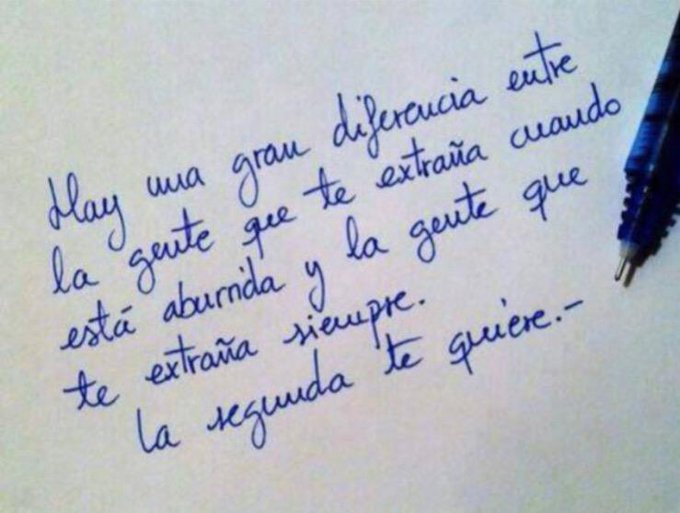 Hay una gran diferencia entre
la gente que te extraña cuando
está aburrida y la gente que
te extraña siempre.
la segunda te quiere.-